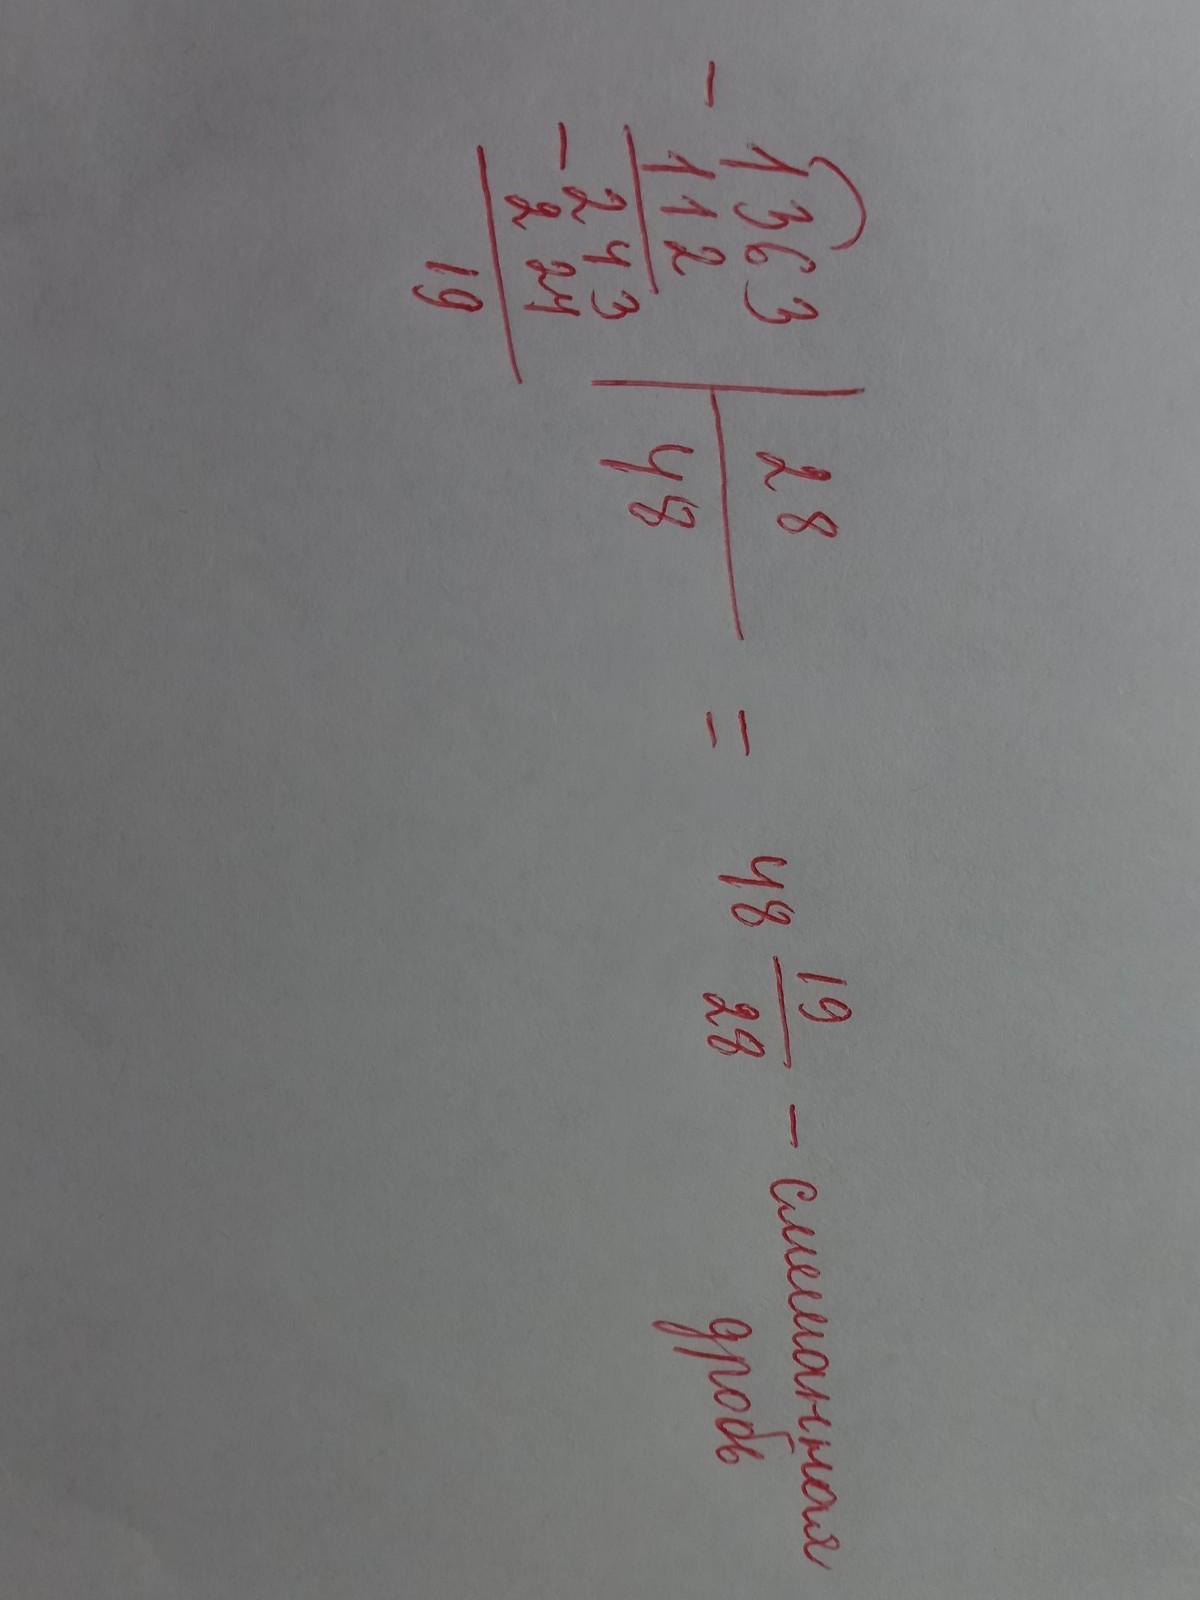 - 1363 | 28
112 | 48 = 48 19/28 - смешанная
- 243 дробь
224
19